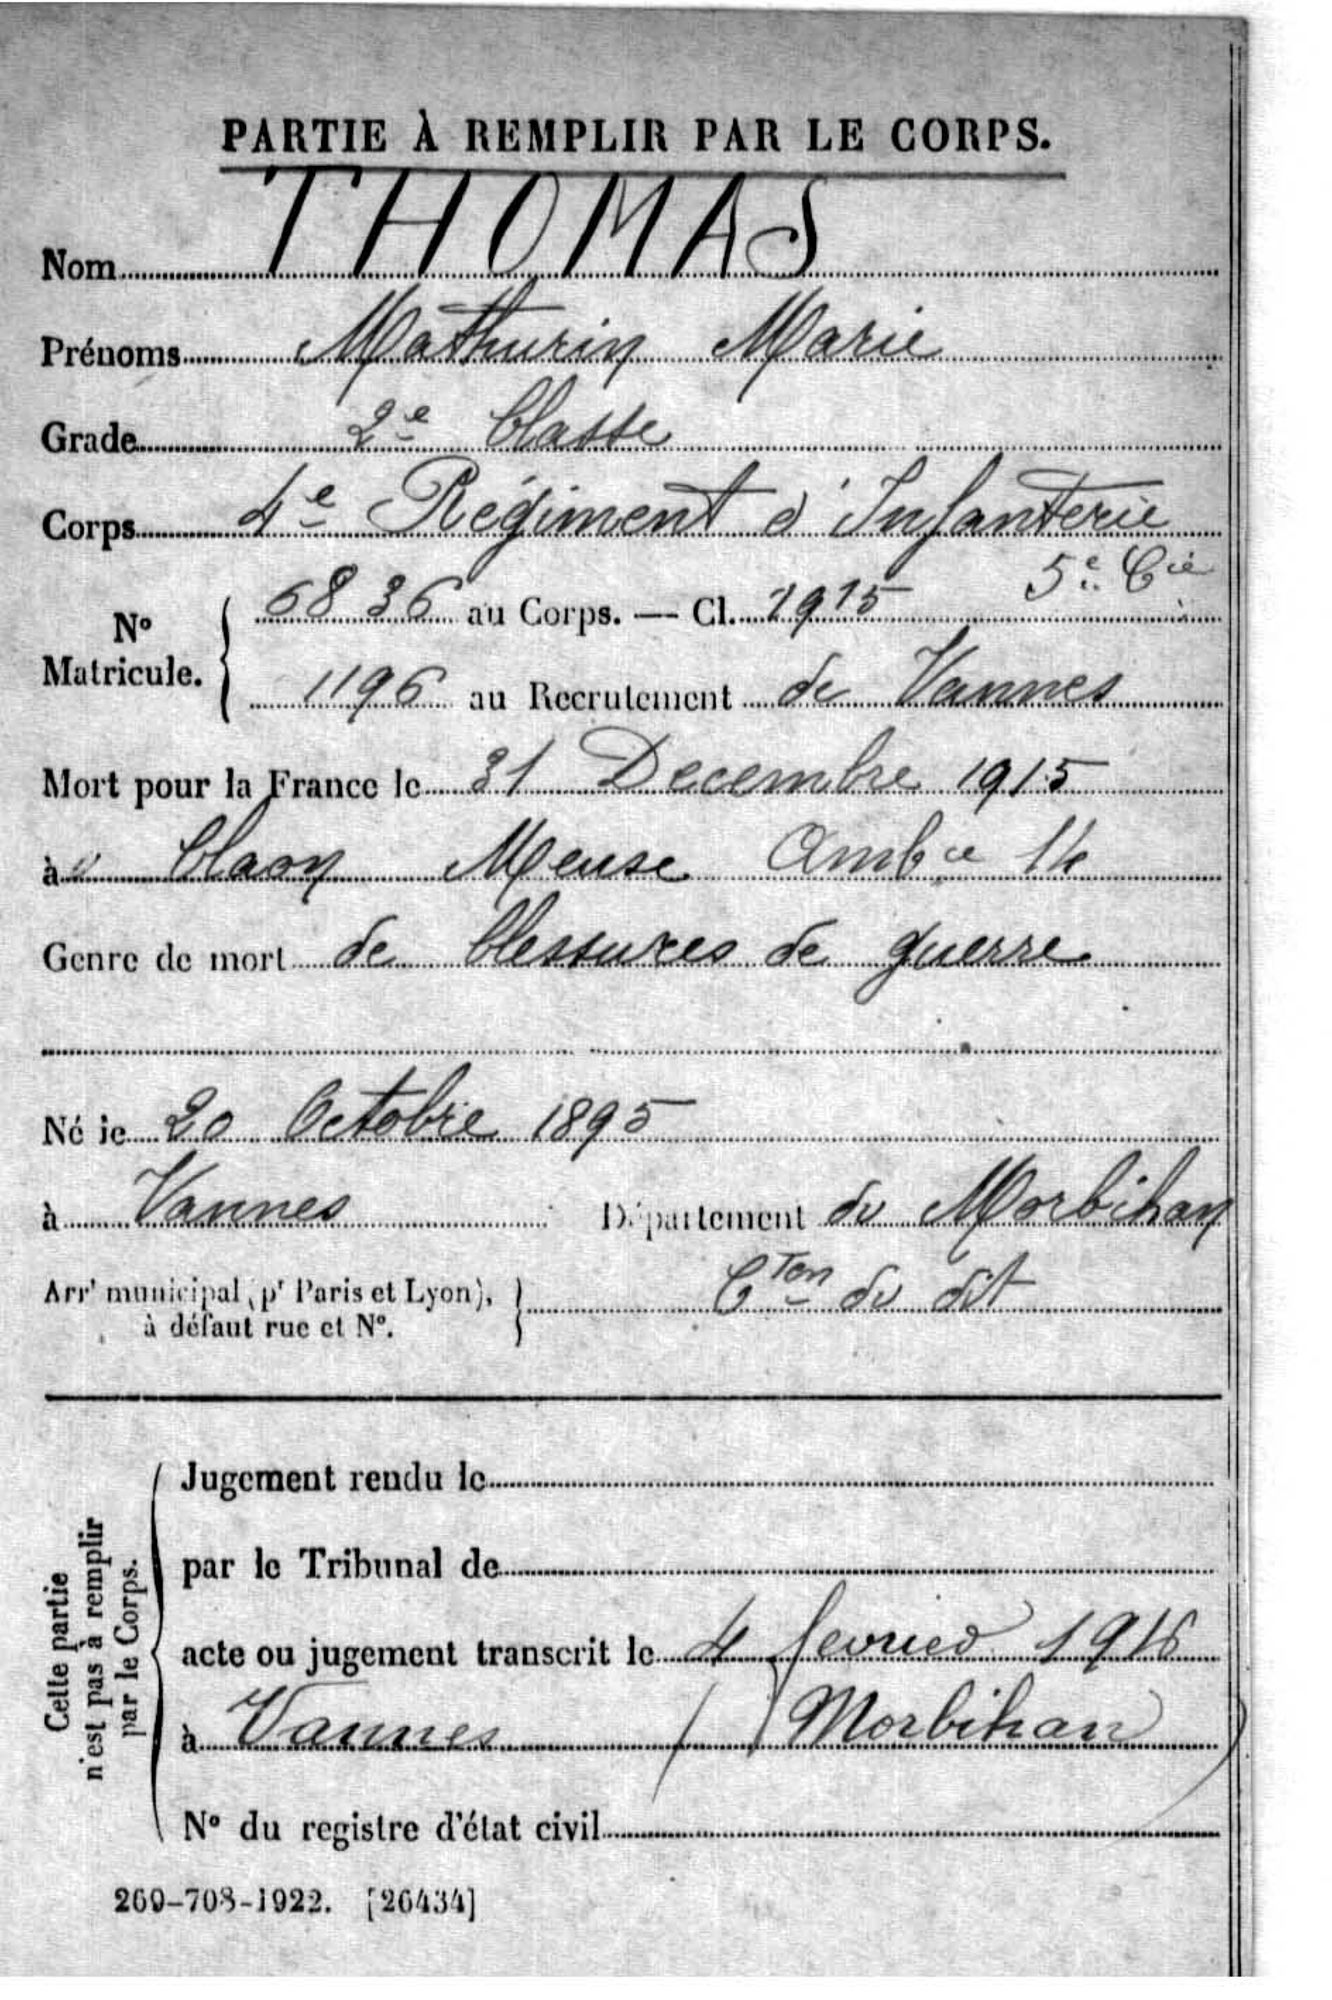 PARTIE À REMPLIR PAR LE CORPS.
THOMAS
Nom
Prénoms Mathurin Marie
Grade 2e Classe
Corps 4e Régiment d'Infanterie
5e Cie
No Matricule. { 6836 au Corps. — Cl. 1915
1196 au Recrutement de Vannes
Mort pour la France le 31 Decembre 1915
à Claon Meuse Ambce 14
Genre de mort de blessures de guerre
Né le 20 Octobre 1895
à Vannes Département du Morbihan
Arrt municipal (pr Paris et Lyon), à défaut rue et No. } Cton du dit
Cette partie n'est pas à remplir par le Corps.
Jugement rendu le
par le Tribunal de
acte ou jugement transcrit le 4 fevrier 1916
à Vannes (Morbihan)
No du registre d'état civil
269-708-1922. [26434]